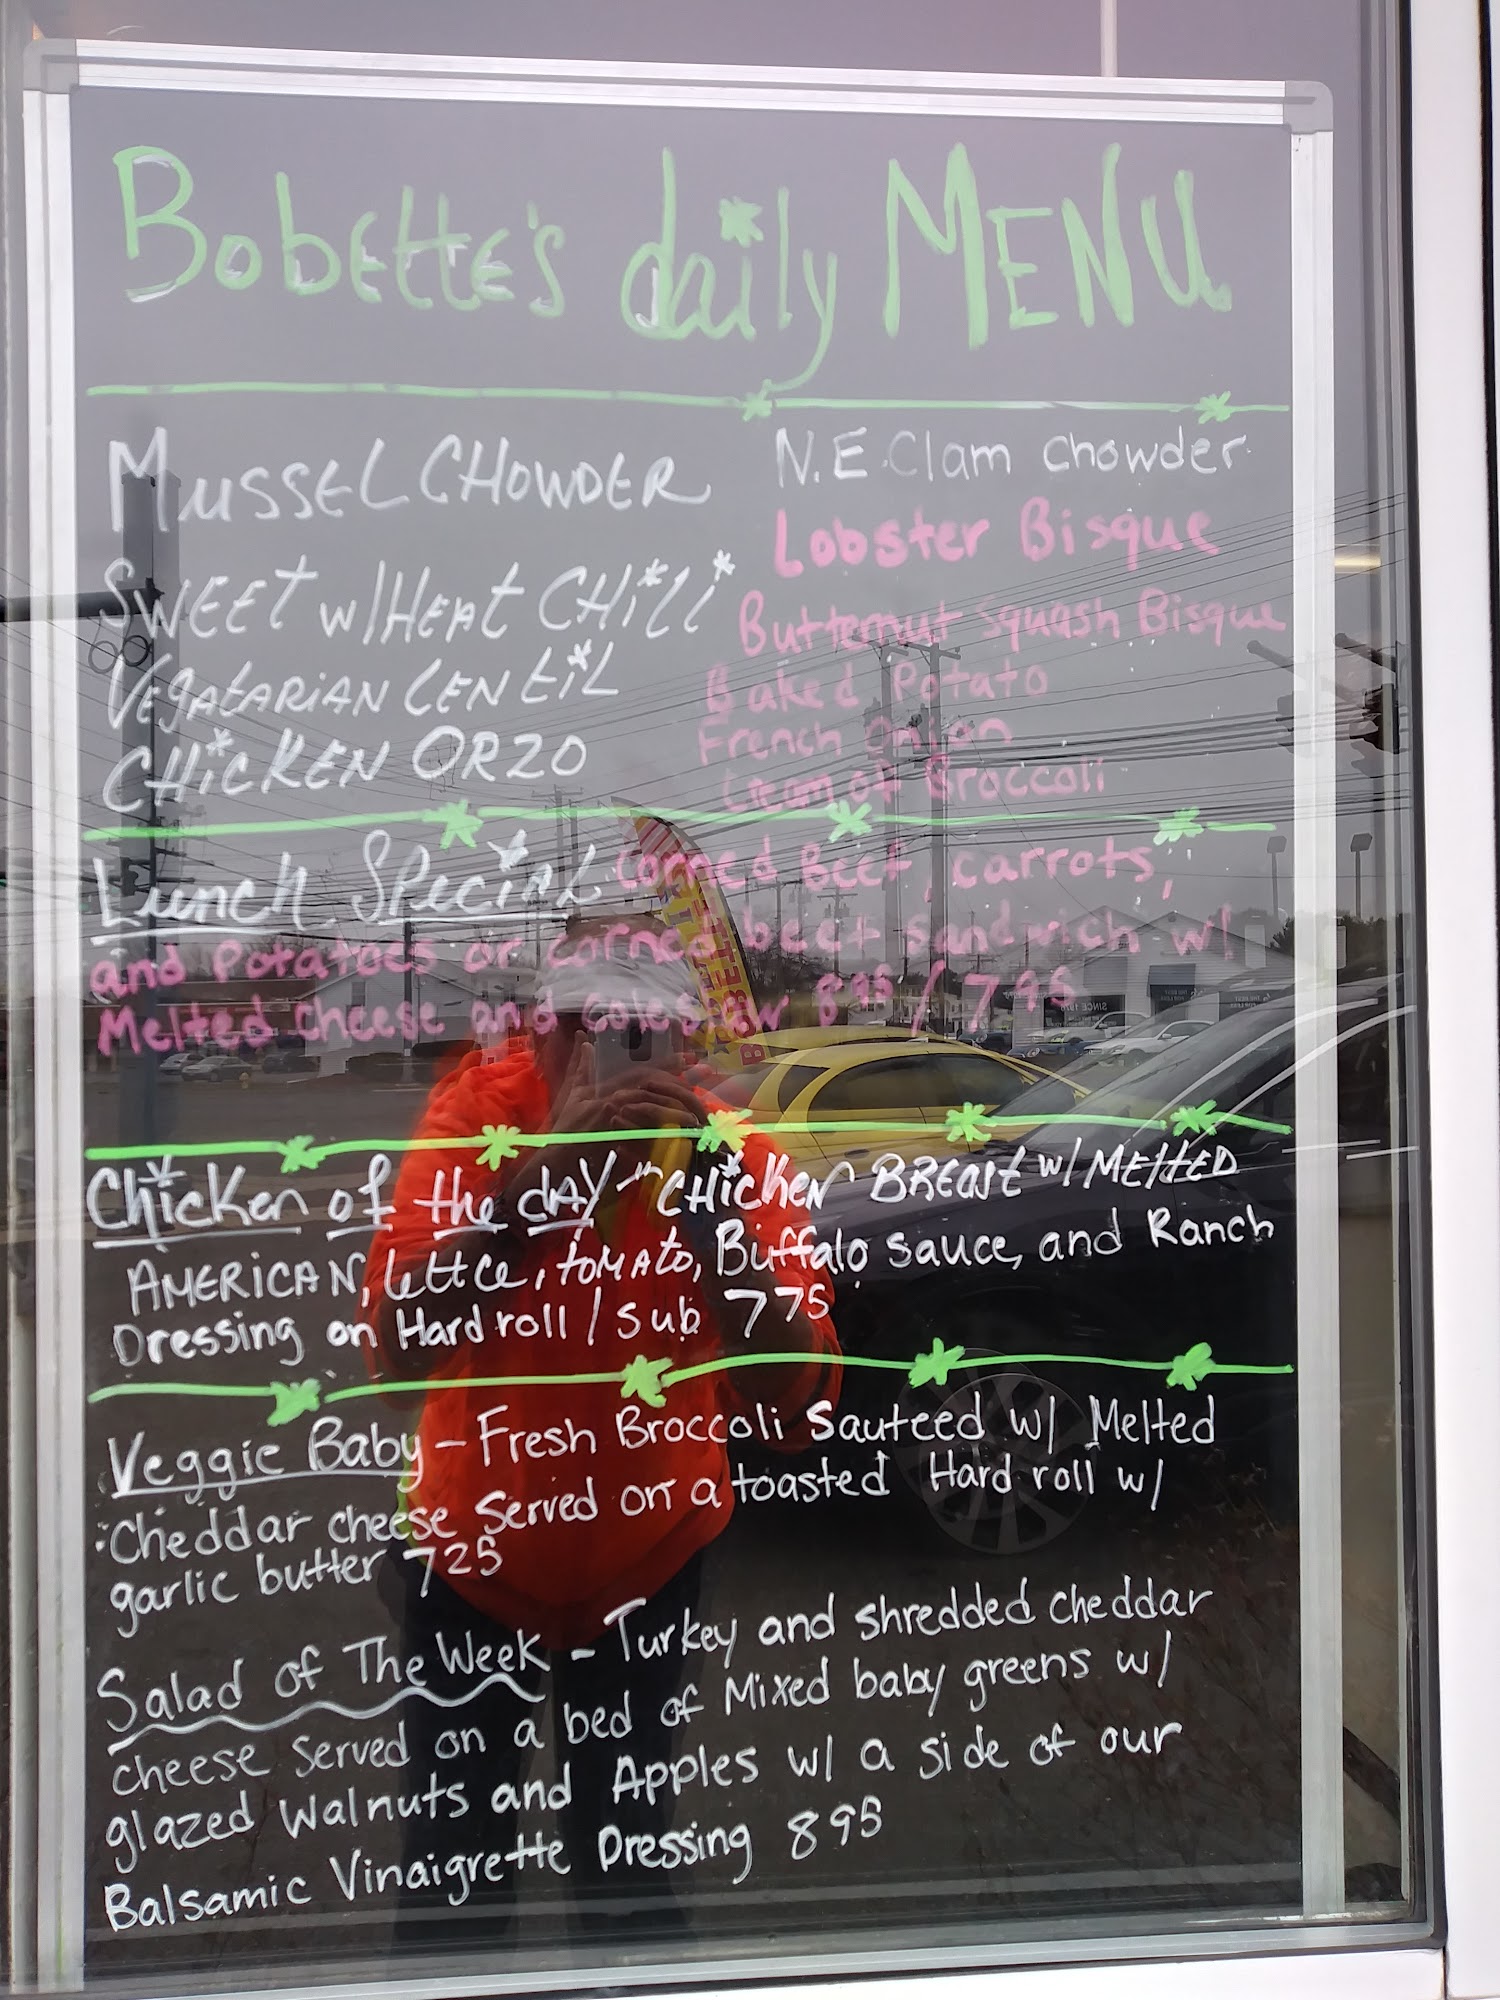 Bobette's daily MENU
MUSSEL CHOWDER
SWEET w/HEAT CHiLi
VEgATARiAN LENtiL
CHiCKEN ORZO
N.E. Clam Chowder
Lobster Bisque
Butternut Squash Bisque
Baked Potato
French Onion
Cream of Broccoli
Lunch Special Corned Beef, carrots,
and Potatoes or corned beef sandwich w/
Melted cheese and coleslaw 895 / 795
Chicken of the dAY - CHicken BREAST w/ MELTED
AMERICAN, lettce, tOMAto, Buffalo sauce, and Ranch
Dressing on Hard roll / sub 775
Veggie Baby - Fresh Broccoli Sauteed w/ Melted
Cheddar cheese served on a toasted Hard roll w/
garlic butter 725
Salad of The Week - Turkey and shredded cheddar
cheese served on a bed of Mixed baby greens w/
glazed walnuts and Apples w/ a side of our
Balsamic Vinaigrette Dressing 895